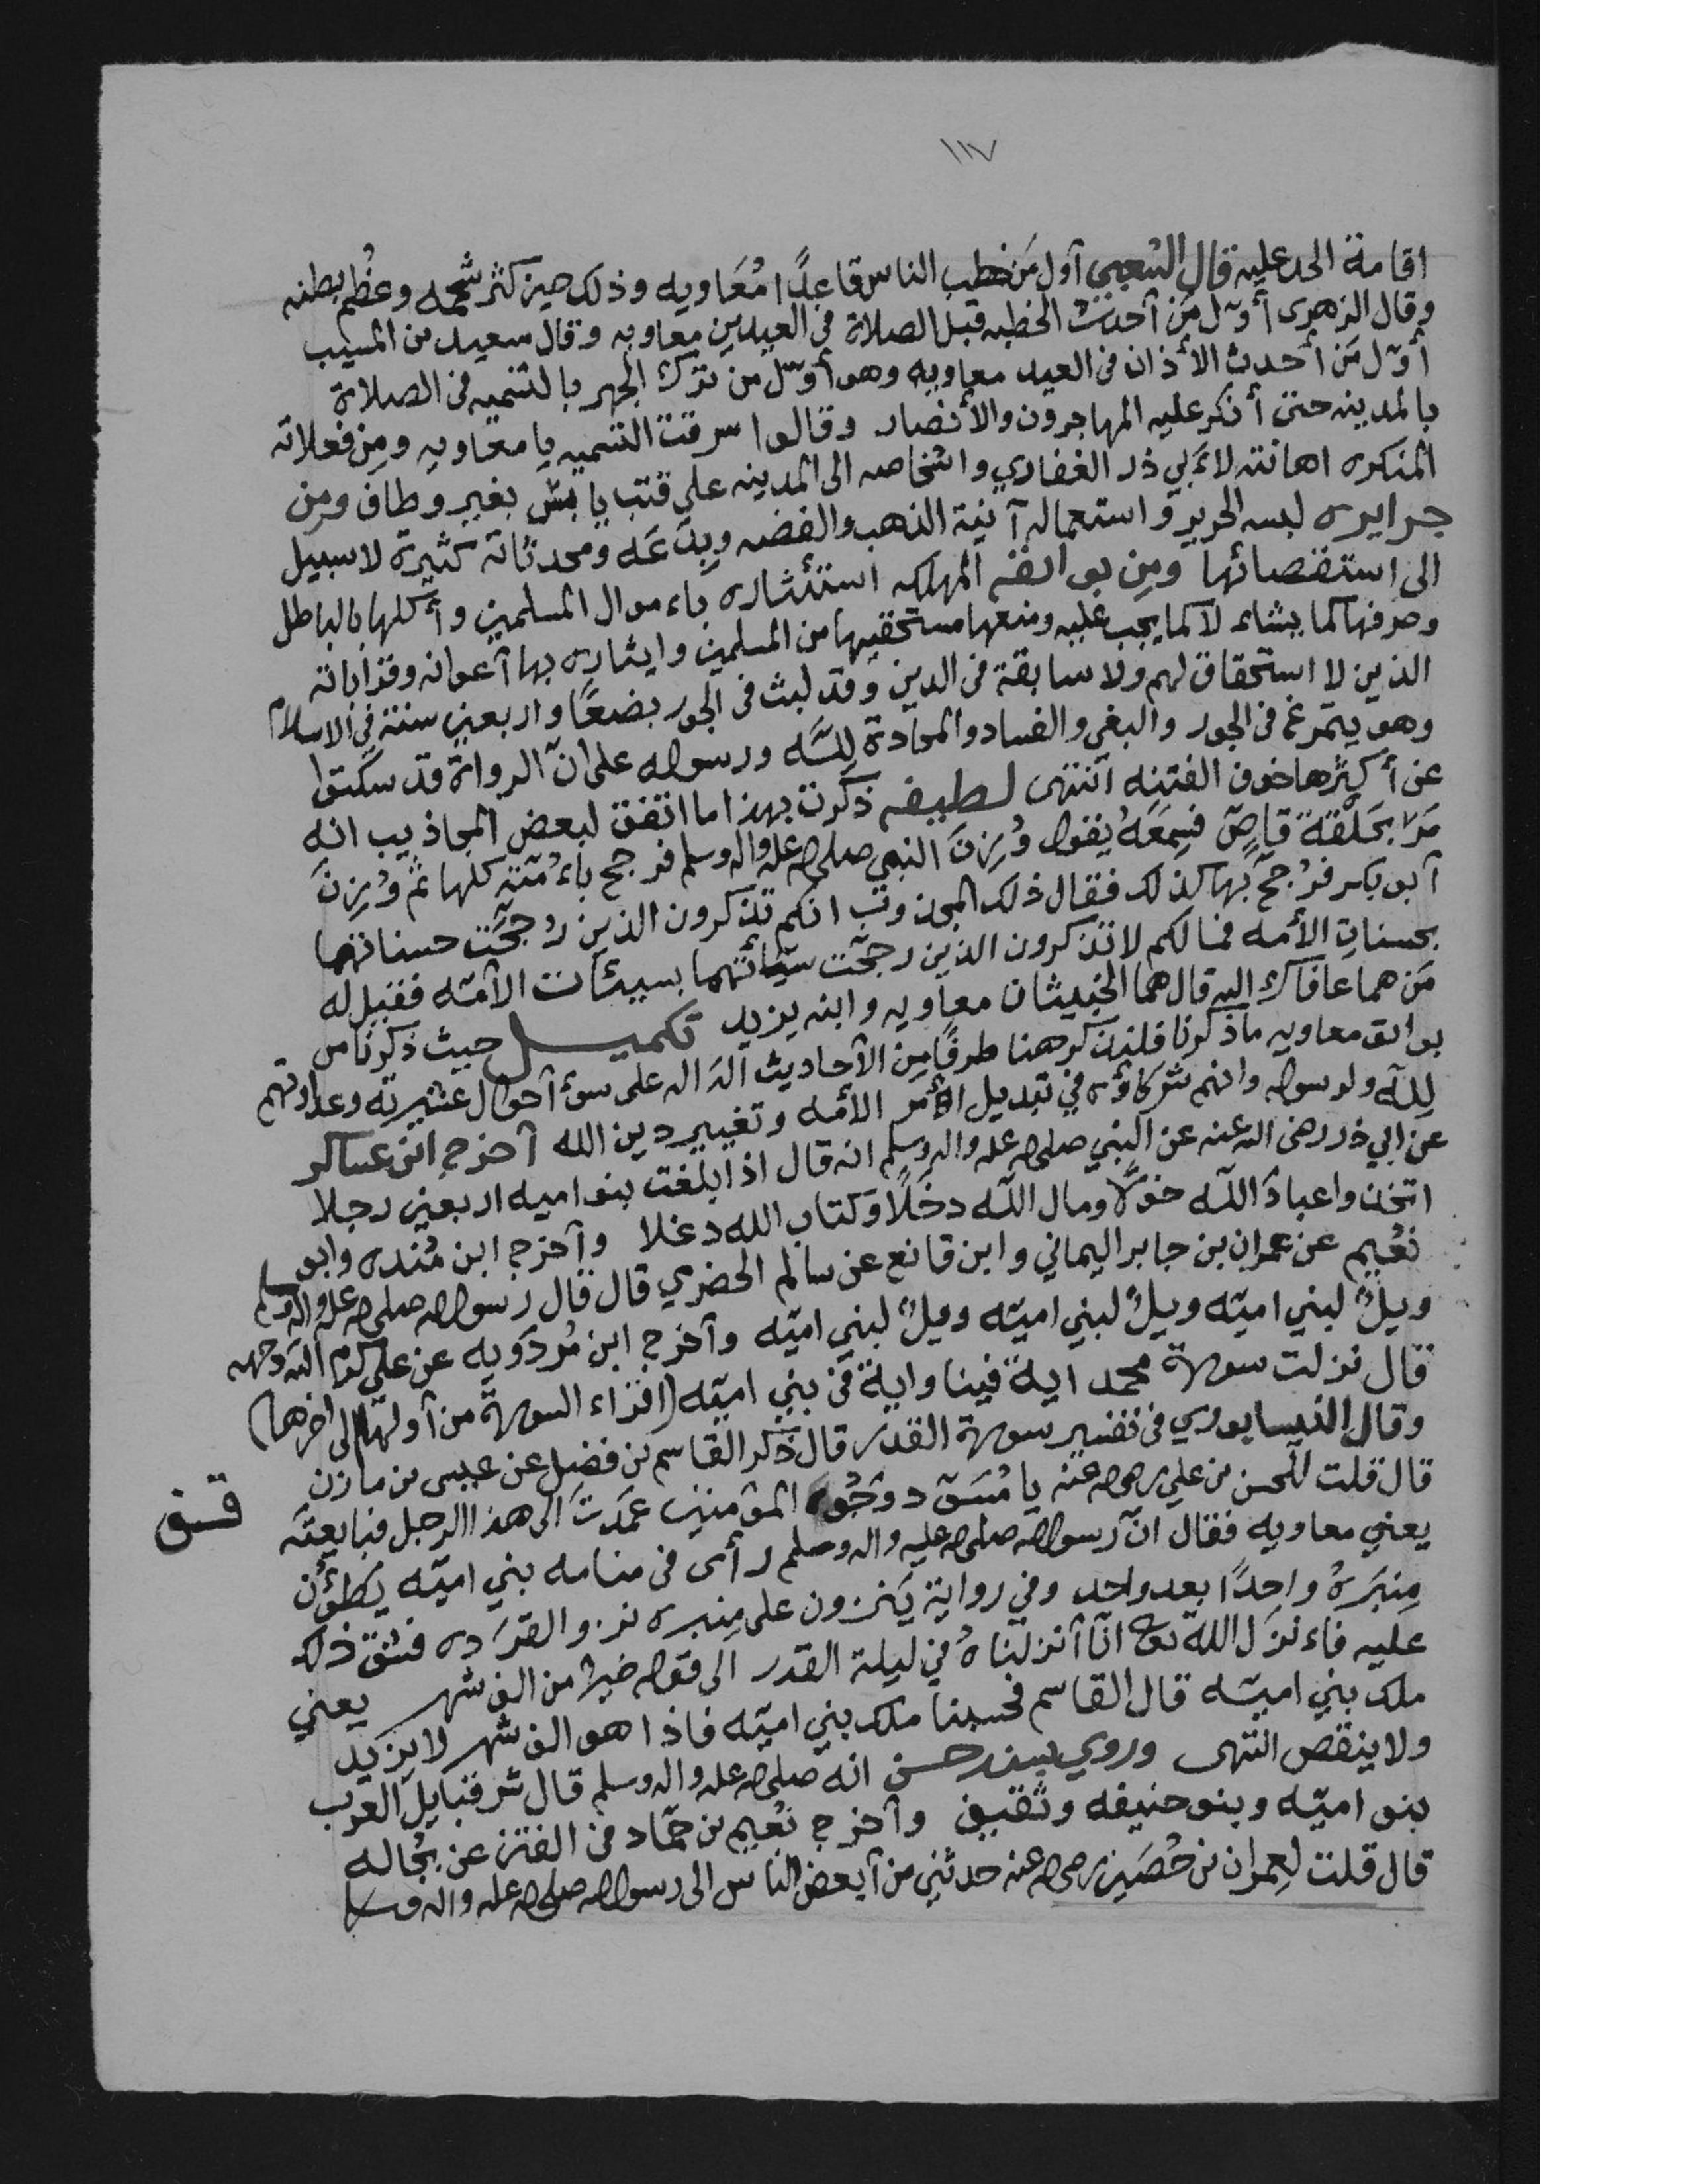 ١١٧
اقامة الحد عليه قال الشعبى أول مَن خطب الناس قاعدًا مُعَاويه وذلك حين كثر شحمه وعظُم بطنه
وقال الزهرى أوّل مَن آحدث الخطبه قبل الصلاة فى العيدين معاويه وقال سعيد بن المسيب
أوّل مَن أحدث الأذان فى العيد معاويه وهو أوّل من ترك الجهر بالتسميه فى الصلاة
بالمدينه حتى أنكر عليه المهاجرون والأنصار وقالوا سرقت التسميه يا معاويه ومِن فعلاته
المنكره اهانته لاَبي ذر الغفاري واشخاصه الى المدينه على قتب يابس بغير وطاف ومن
جرايره لبسه الحرير واستعماله آنية الذهب والفضه وبِدَعَه ومحدثاته كثيرة لا سبيل
الى استقصائها ومِن بوائقه المهلكه استئشاره باءموال المسلمين وأكلها بالباطل
وصرفها كما يشاء لا كما يجب عليه ومنعها مستحقيها من المسلمين وايثاره بها آعوانه وقراباته
الذين لا استحقاق لهم ولا سابقة فى الدين وقد لبث فى الجور بضعًا واربعين سنة فى الاسلام
وهو يتمرغ فى الجور والبغي والفساد والمحادة لِلّه ورسوله على انّ الرواة قد سكتوا
عن أكثرها خوف الفتنه آنتهى لطيفه ذكرت بهذا ما اتفق لبعض المجاذيب انه
مَرّ بحَلْقة قاصّ فسِمَعَهُ يقول وُزِنَ النبي صلى الله عليه واله وسلم فرجح باءُمّته كلها ثم وُزِنَ
آبو بكر فرُجح بها كذلك فقال ذلك المجذوب انكم تذكرون الذين رجحَت حسناتهما
بحسناتِ الأمه فما لكم لا تذكرون الذين رجحّت سيّاتهما بسيئات الآمّه فقيل له
مَن هما عافاك الله قال هما الخبيثان معاويه وابنه يزيد تكميل حيث ذكرنا من
بوائق معاويه ماذكرنا فلنذكر هنا طرفًا مِن الآحاديث الدَاله على سوء آحوال عشيرته وعداوتهم
لِلّه ولرسوله وانهم شركاؤه في تبديل امر الأمه وتغيير دين الله آخرج ابن عساكر
عن ابي ذر رضى الله عنه عن النبي صلى الله عليه واله وسلم انه قال اذا بلغت بنو اميه اربعين رجلا
اتخذوا عبادَ اللّه خوَلًا ومال اللّه دخَلًا وكتاب الله دغلا وآخرج ابن مُنده وابو
نعُيم عن عمران بن جابر اليماني وابن قانع عن سالم الحضري قال قال رسول الله صلى الله عليه واله وسلم
ويلٌ لبني اميّه ويلٌ لبني اميّه ويلٌ لبني اميّه وآخرج ابن مُردَويه عن على كرم الله وجهه
قال نزلت سورة محمد اية فينا واية فى بني اميّه (اقراء السورة من آولها الى اخرها)
وقال النيسابوري فى تفسير سورة القدر قال ذكر القاسم بن فضيل عن عيسى بن مازن
قال قلت للحسن بن علي رضى الله عنه يا مُسَوّد وجُوه المؤمنين عمَدتَ الى هذا الرجل فبايعتَه
يعني معاويه فقال انّ رسول الله صلى الله عليه واله وسلم رأى فى منامه بني اميّه يَطؤُن
مِنبَرهُ واحدًا بعد واحد وفي رواية يَنزون على مِنبره نزو القرَده فشق ذلك
عليه فاءنزَل اللّه تع انّا آنزلناهُ في ليلة القدر الى قوله خير من الف شهر يعني
ملك بني اميّه قال القاسم فحسبنا ملك بني اميّه فاذا هو الف شهر لا يزيد
ولا ينقص انتهى وروي بسند حسن انه صلى الله عليه واله وسلم قال شر قبايل العرب
بنو اميّه وبنو حنيفه وثقيف وآخرج نعُيم بن حمّاد فى الفتن عن بجُاله
قال قلت لعمران بن حُصَين رضى الله عنه حدثني من آبغض الناس الى رسول الله صلى الله عليه واله وسلم